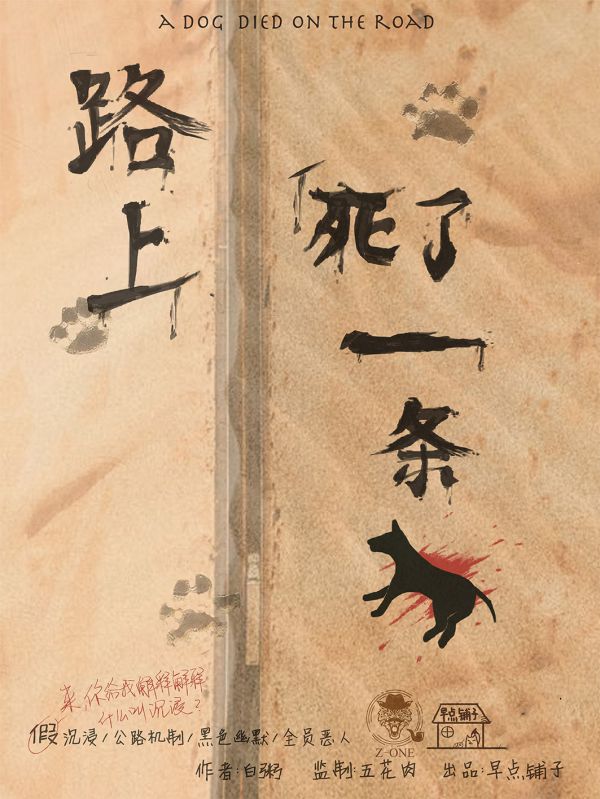 A DOG DIED ON THE ROAD
路上
死了一条
来，你给我解释解释
什么叫沉浸？
假沉浸/公路机制/黑色幽默/全员恶人
Z-ONE
早点铺子
作者:白粥 监制:五花肉 出品:早点铺子